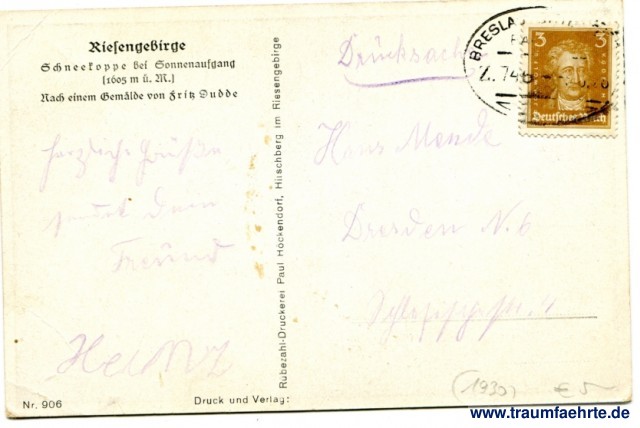 Riesengebirge
Schneekoppe bei Sonnenaufgang
[1605 m ü. M.]
Nach einem Gemälde von Fritz Dudde
herzliche Grüße
Dein
Freund
Heinz
Nr. 906
Druck und Verlag:
Rübezahl-Druckerei Paul Höckendorf, Hirschberg im Riesengebirge
Drucksache
BRESLA
Z. 746
3 3
Deutsches Reich
Hans Mende
Dresden N. 6
(1930)
€ 5
www.traumfaehrte.de